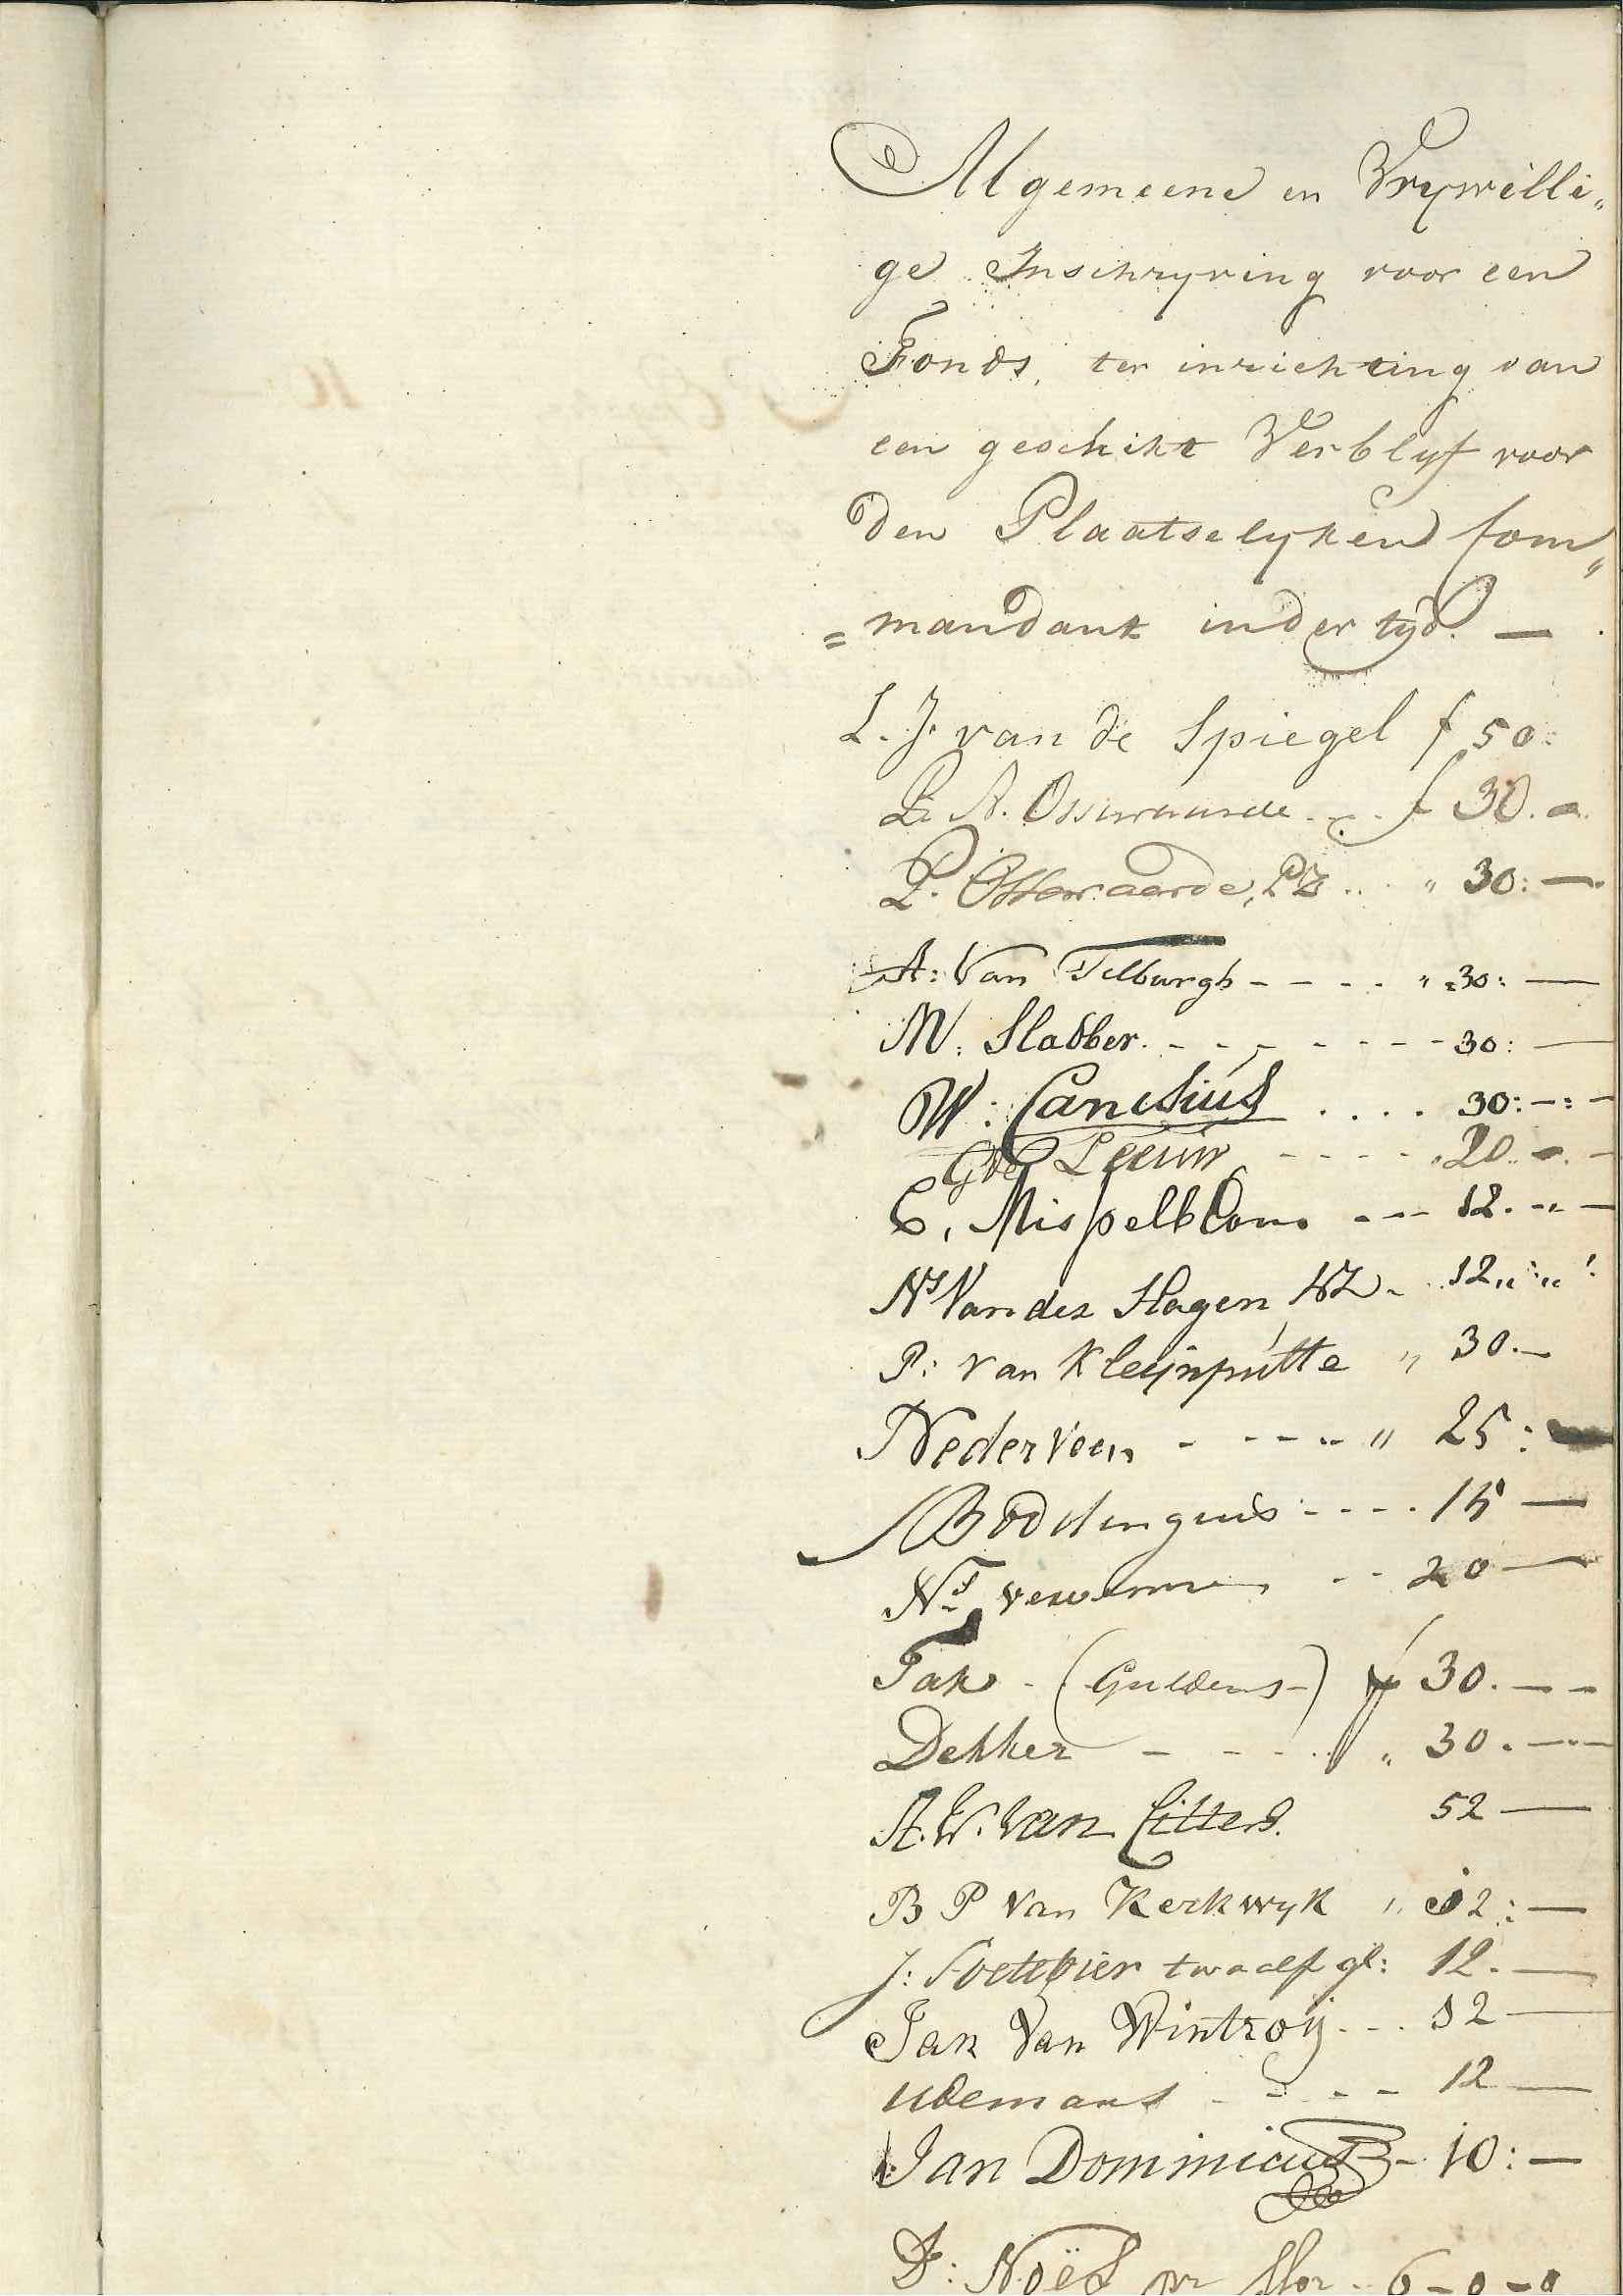 Algemeene en Vrywilli„
ge Inschryving voor een
Fonds, ter inrichting van
een geschikt Verblyf voor
den Plaatselyken Com„
=mandant inder tyd. —
L. J. van de Spiegel f 50:
A. Ossewaarde f 30. 0.
P. Ossewaarde, PZ .. „ 30: —
A: Van Tilburgh - - - - „ 30: —
M. Slabber. - - - - - - - 30: —
W: Canisius . . . . 30:-:-
G de Leeuw - - - - . 20. 0. -
C. Mispelblom --- 12. -„ -
Ns Van der Hagen HZ. 12„
P: van Kleijnputte „ 30.—
Nederveen - - - - „ 25:
Boddingius - - - . 15 —
20 —
Tak - (Guldens-) f 30. — -
Dekker - - - - „ 30. —
A. W. Van Citters. 52 —
B P Van Kerkwyk „ 12: —
J: Soetebier twaalf gl: 12. —
Jan Van Wintroy - . . 12 —
Udemans - - - - 12 —
Jan Dominicus - 10: —
D: Noël 6-0-0